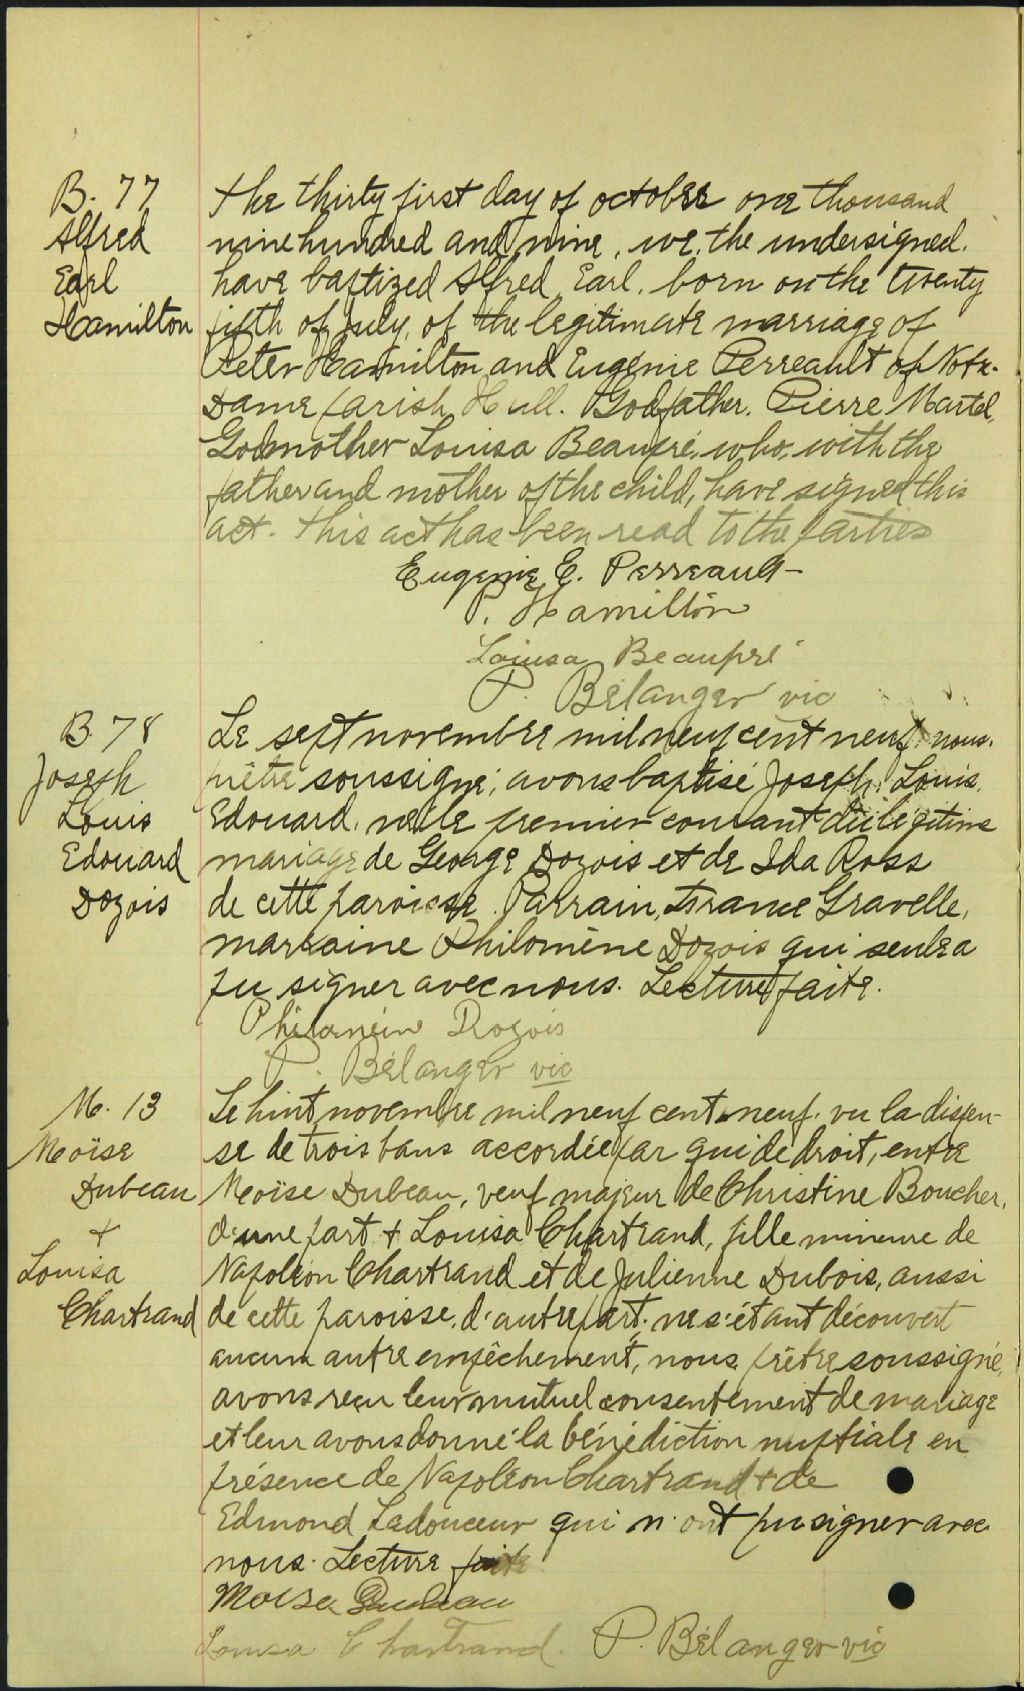 B. 77
Alfred
Earl
Hamilton
The thirty first day of october one thousand
nine hundred and nine, we, the undersigned.
have baptized Alfred Earl. born on the twenty
fifth of July, of the legitimate marriage of
Peter Hamilton and Eugénie Perreault of Notre-
Dame parish Hull. Godfather. Pierre Martel,
Godmother Louisa Beaupré, who, with the
father and mother of the child, have signed this
act. This act has been read to the parties
Eugenie E. Perreault
P. Hamilton
Louisa Beaupré
P. Bélanger vic
B. 78
Joseph
Louis
Edouard
Dozois
Le sept novembre mil neuf cent neuf. nous.
prêtre soussigné, avons baptisé Joseph. Louis.
Edouard. né le premier courant du légitime
mariage de George Dozois et de Ida Ross
de cette paroisse. Parrain, France Gravelle,
marraine Philomène Dozois qui seule a
pu signer avec nous. Lecture faite.
Dozois
P. Bélanger vic
M. 13
Moïse
Dubeau
+
Louisa
Chartrand
Le huit novembre mil neuf cent neuf. vu la dispen-
se de trois bans accordée par qui de droit, entre
Moïse Dubeau, veuf majeur de Christine Boucher,
d'une part + Louisa Chartrand, fille mineure de
Napoléon Chartrand et de Julienne Dubois, aussi
de cette paroisse. d'autre part. ne s'étant découvert
aucun autre empêchement, nous, prêtre soussigné,
avons reçu leur mutuel consentement de mariage
et leur avons donné la bénédiction nuptiale en
présence de Napoléon Chartrand + de
Edmond Ladouceur qui n'ont pu signer avec
nous. Lecture faite
Moise Dubeau
Louisa Chartrand. P. Bélanger vic